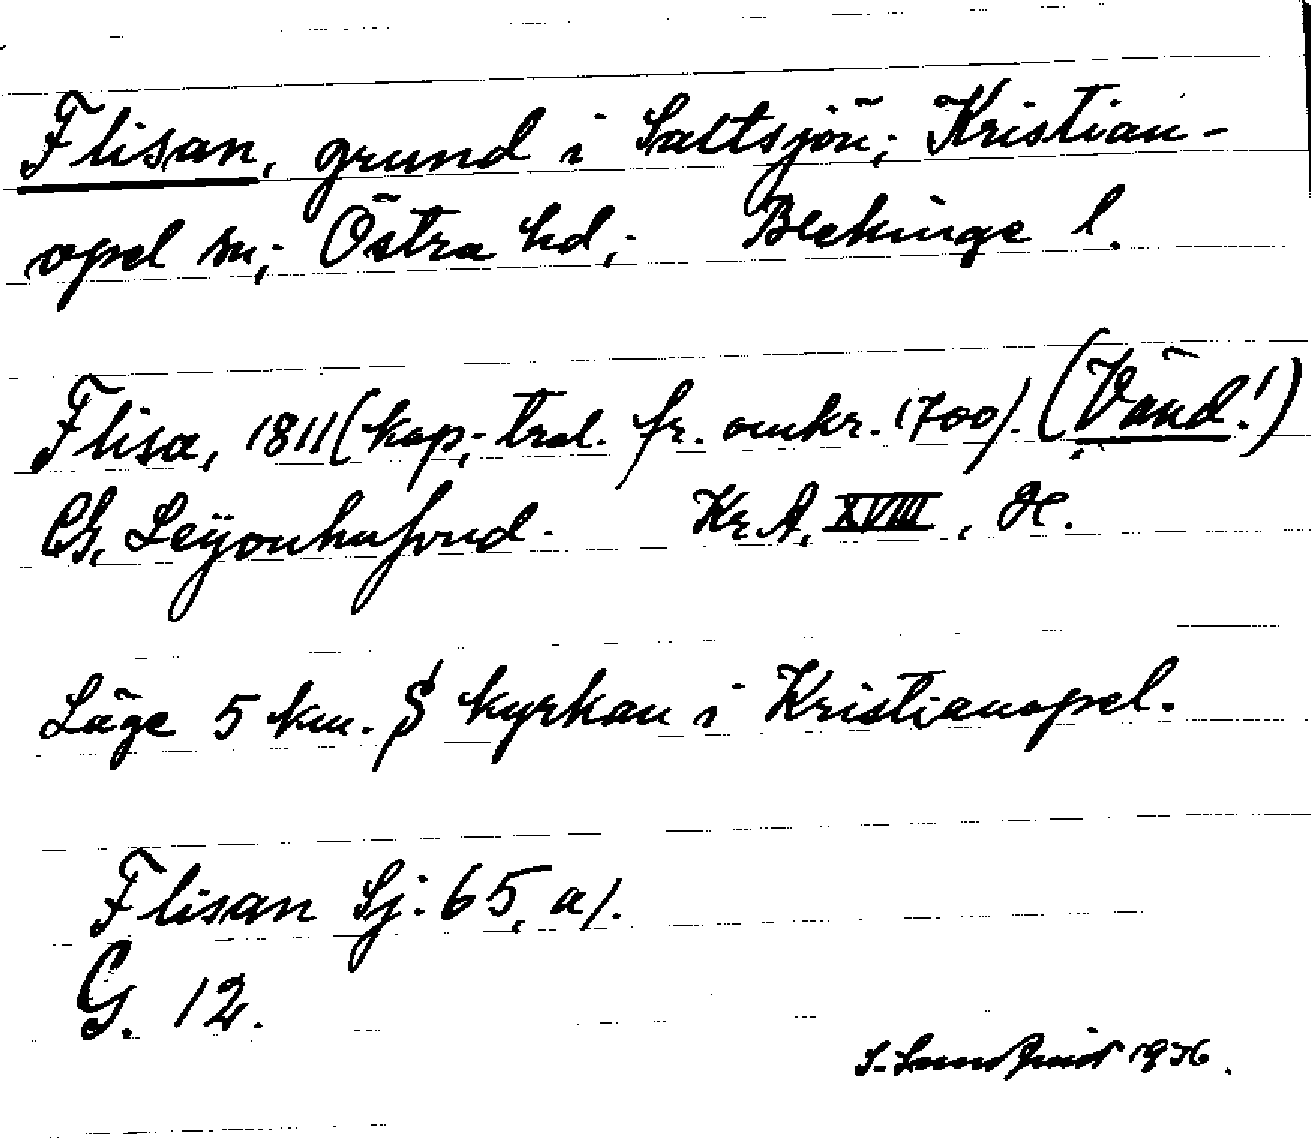 Flisan, grund i Saltsjön; Kristian-
opel sn; Östra hd; Blekinge l.
Flisa, 1811 (kop; tral. fr. omkr. 1700). (Vänd!)
Ch. Leÿonhufvud. Kr. A. XVIII, H.
Läge 5 km. S kyrkan i Kristianopel.
Flisan Sj. 65, a/.
G. 12.
S. Lundqvist 1936.